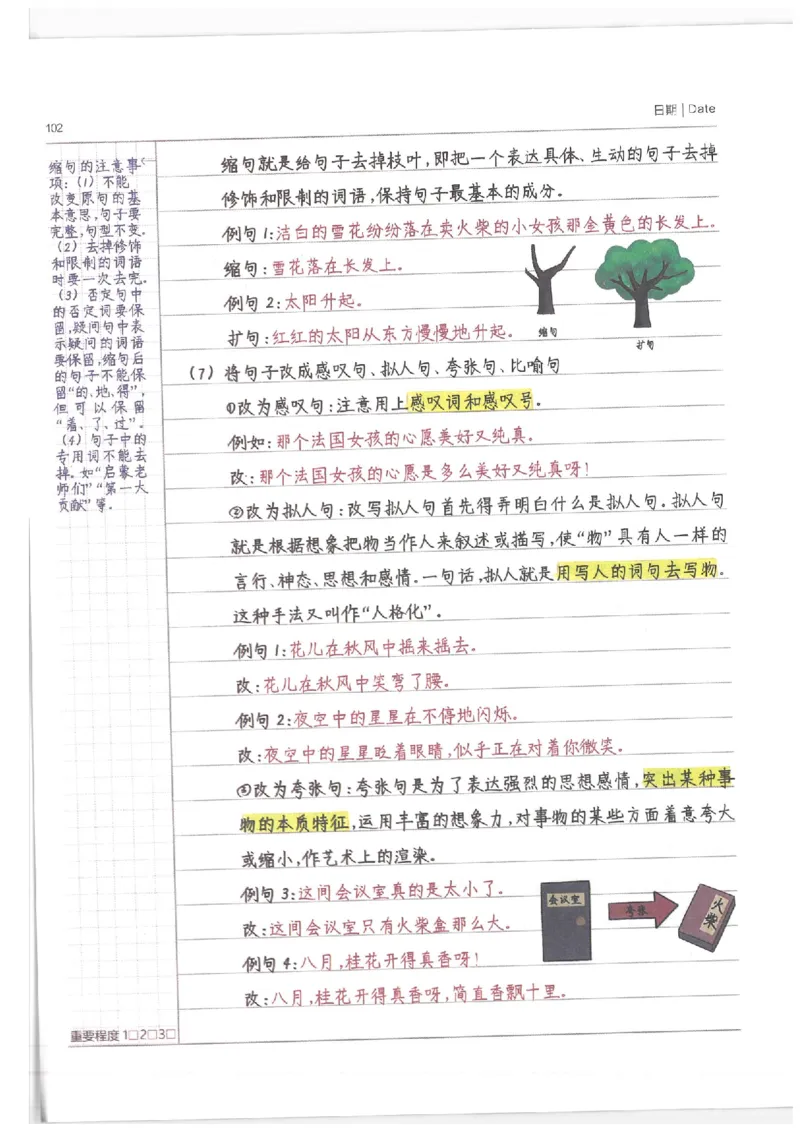 日期 | Date
102
缩句的注意事
项:(1)不能
改变原句的基
本意思,句子要
完整,句型不变。
(2)去掉修饰
和限制的词语
时要一次去完。
(3)否定句中
的否定词要保
留,疑问句中表
示疑问的词语
要保留,缩句后
的句子不能保
留“的、地、得”,
但可以保留
“着、了、过”。
(4)句子中的
专用词不能去
掉。如“启蒙老
师们”“第一大
贡献”等。
缩句就是给句子去掉枝叶,即把一个表达具体、生动的句子去掉
修饰和限制的词语,保持句子最基本的成分。
例句1:洁白的雪花纷纷落在卖火柴的小女孩那金黄色的长发上。
缩句:雪花落在长发上。
例句2:太阳升起。
扩句:红红的太阳从东方慢慢地升起。
缩句
扩句
(7)将句子改成感叹句、拟人句、夸张句、比喻句
①改为感叹句:注意用上感叹词和感叹号。
例如:那个法国女孩的心愿美好又纯真。
改:那个法国女孩的心愿是多么美好又纯真呀!
②改为拟人句:改写拟人句首先得弄明白什么是拟人句。拟人句
就是根据想象把物当作人来叙述或描写,使“物”具有人一样的
言行、神态、思想和感情。一句话,拟人就是用写人的词句去写物。
这种手法又叫作“人格化”。
例句1:花儿在秋风中摇来摇去。
改:花儿在秋风中笑弯了腰。
例句2:夜空中的星星在不停地闪烁。
改:夜空中的星星眨着眼睛,似乎正在对着你微笑。
③改为夸张句:夸张句是为了表达强烈的思想感情,突出某种事
物的本质特征,运用丰富的想象力,对事物的某些方面着意夸大
或缩小,作艺术上的渲染。
例句3:这间会议室真的是太小了。
改:这间会议室只有火柴盒那么大。
会议室
夸张
火柴
例句4:八月,桂花开得真香呀!
改:八月,桂花开得真香呀,简直香飘十里。
重要程度 1□2□3□